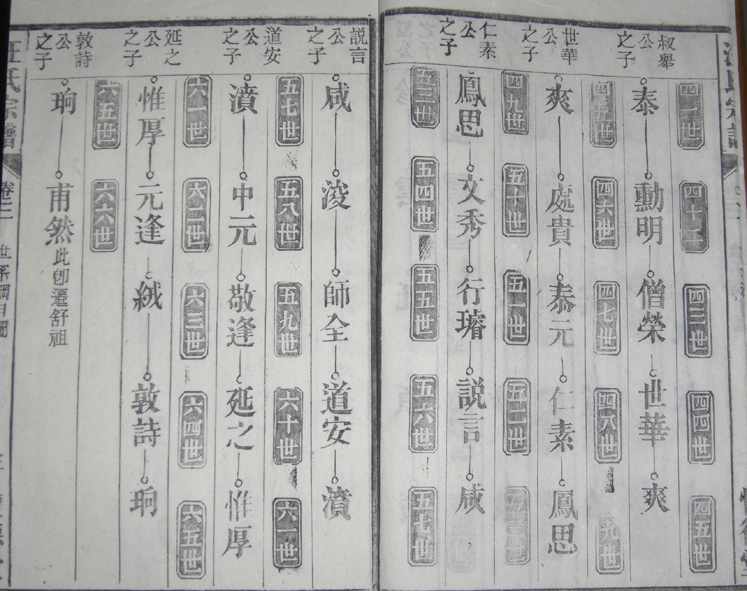 四一世 四十二 四三世 四四世 四五世
叔舉公之子
泰 勳明 僧榮 世華 爽
四五世 四六世 四七世 四八世 四九世
世華公之子
爽 處貴 泰元 仁素 鳳思
四九世 五十世 五一世 五二世 五三世
仁素公之子
鳳思 文秀 行璿 説言 咸
五三世 五四世 五五世 五六世 五七世
説言公之子
咸 浚 師全 道安 濆
五七世 五八世 五九世 六十世 六一世
道安公之子
濆 中元 敬逢 延之 惟厚
六一世 六二世 六三世 六四世 六五世
延之公之子
惟厚 元逢 絨 敦詩 珦
六五世 六六世
敦詩公之子
珦 甫然 此卽遷舒祖
汪氏宗譜 卷二 世系綱目圖